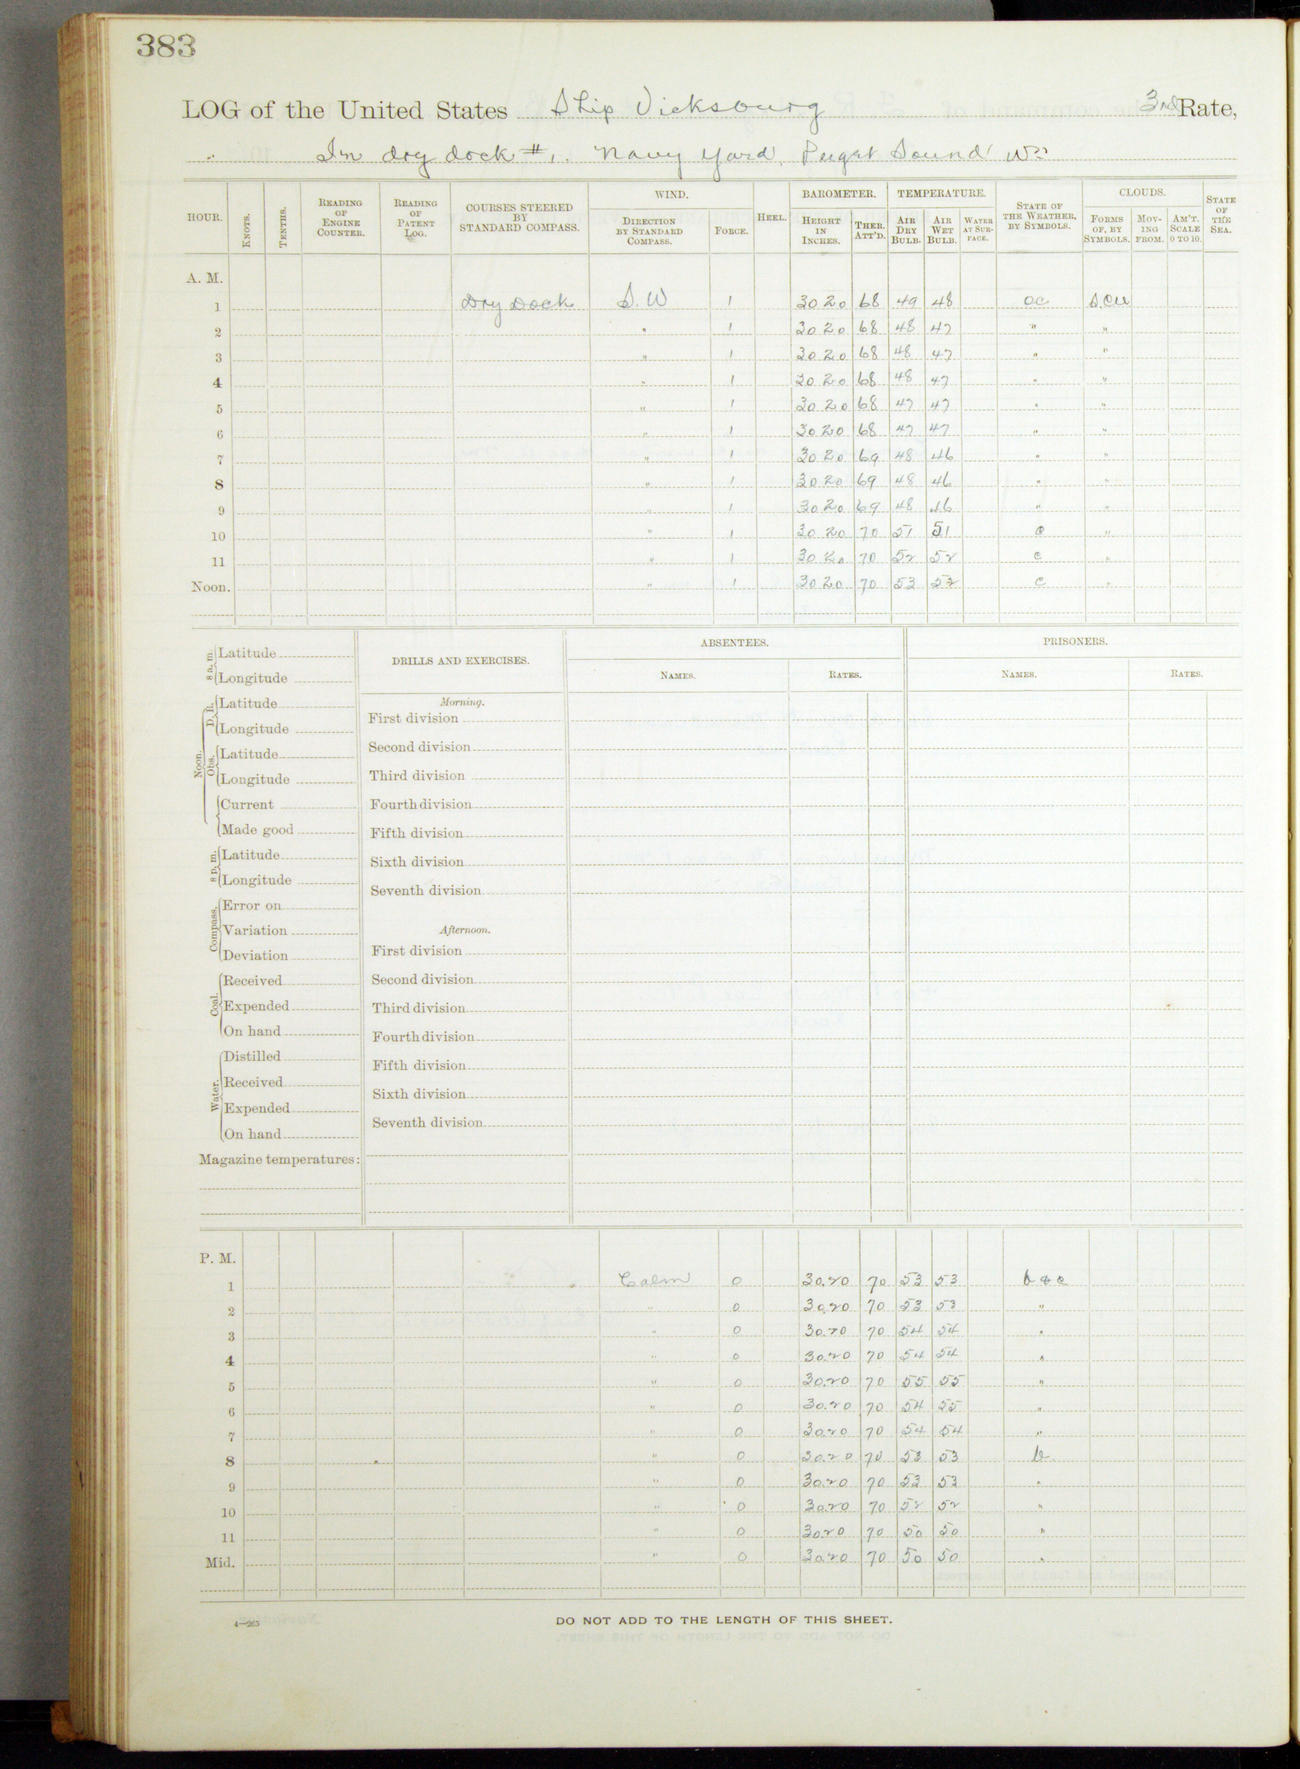 383
LOG of the United States Ship Vicksburg 3rd Rate,
In dry dock #1. Navy Yard, Puget Sound Wn
HOUR. KNOTS. TENTHS. READING OF ENGINE COUNTER. READING OF PATENT LOG. COURSES STEERED BY STANDARD COMPASS. WIND. DIRECTION BY STANDARD COMPASS. FORCE. HEEL. BAROMETER. HEIGHT IN INCHES. THER. ATT'D. TEMPERATURE. AIR DRY BULB. AIR WET BULB. WATER AT SURFACE. STATE OF THE WEATHER, BY SYMBOLS. CLOUDS. FORMS OF, BY SYMBOLS. MOVING FROM. AM'T. SCALE 0 TO 10. STATE OF THE SEA.
A. M.
1 Dry Dock S. W 1 30 20 68 49 48 oc S.Cu
2 " 1 30 20 68 48 47 " "
3 " 1 30 20 68 48 47 " "
4 " 1 30 20 68 48 47 " "
5 " 1 30 20 68 47 47 " "
6 " 1 30 20 68 47 47 " "
7 " 1 30 20 69 48 46 " "
8 " 1 30 20 69 48 46 " "
9 " 1 30 20 69 48 46 " "
10 " 1 30 20 70 51 51 "
11 " 1 30 20 70 52 52 c "
Noon. " 1 30 20 70 53 c "
8 a. m. Latitude
Longitude
Noon. D. R. Latitude
Longitude
Obs. Latitude
Longitude
Current
Made good
8 p. m. Latitude
Longitude
Compass. Error on
Variation
Deviation
Coal. Received
Expended
On hand
Water. Distilled
Received
Expended
On hand
Magazine temperatures:
DRILLS AND EXERCISES.
Morning.
First division
Second division
Third division
Fourth division
Fifth division
Sixth division
Seventh division
Afternoon.
First division
Second division
Third division
Fourth division
Fifth division
Sixth division
Seventh division
ABSENTEES.
NAMES. RATES.
PRISONERS.
NAMES. RATES.
P. M.
1 Calm 0 30.20 70 53 53 b & c
2 " 0 30.20 70 53 53 "
3 " 0 30.20 70 54 54 "
4 " 0 30.20 70 54 54 "
5 " 0 30.20 70 55 55 "
6 " 0 30.20 70 54 55 "
7 " 0 30.20 70 54 54 "
8 " 0 30.20 70 53 53 b
9 " 0 30.20 70 53 53 "
10 " 0 30.20 70 52 52 "
11 " 0 30.20 70 50 50 "
Mid. " 0 30.20 70 50 50 "
4—265
DO NOT ADD TO THE LENGTH OF THIS SHEET.